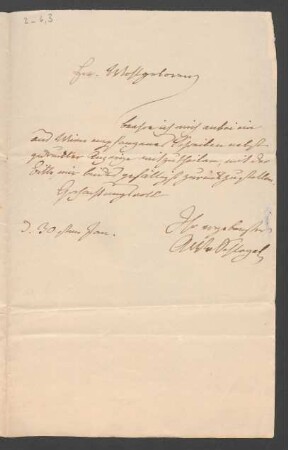 Ew. Wohlgeboren
beehre ich mich anbei ein
aus Wien empfangenes Schreiben nebst
gedruckter Anzeige mitzutheilen, mit der
Bitte mir beides gefälligst zurückzustellen.
Hochachtungsvoll
Ihr ergebenster
d. 30sten Jan.
AWvSchlegel